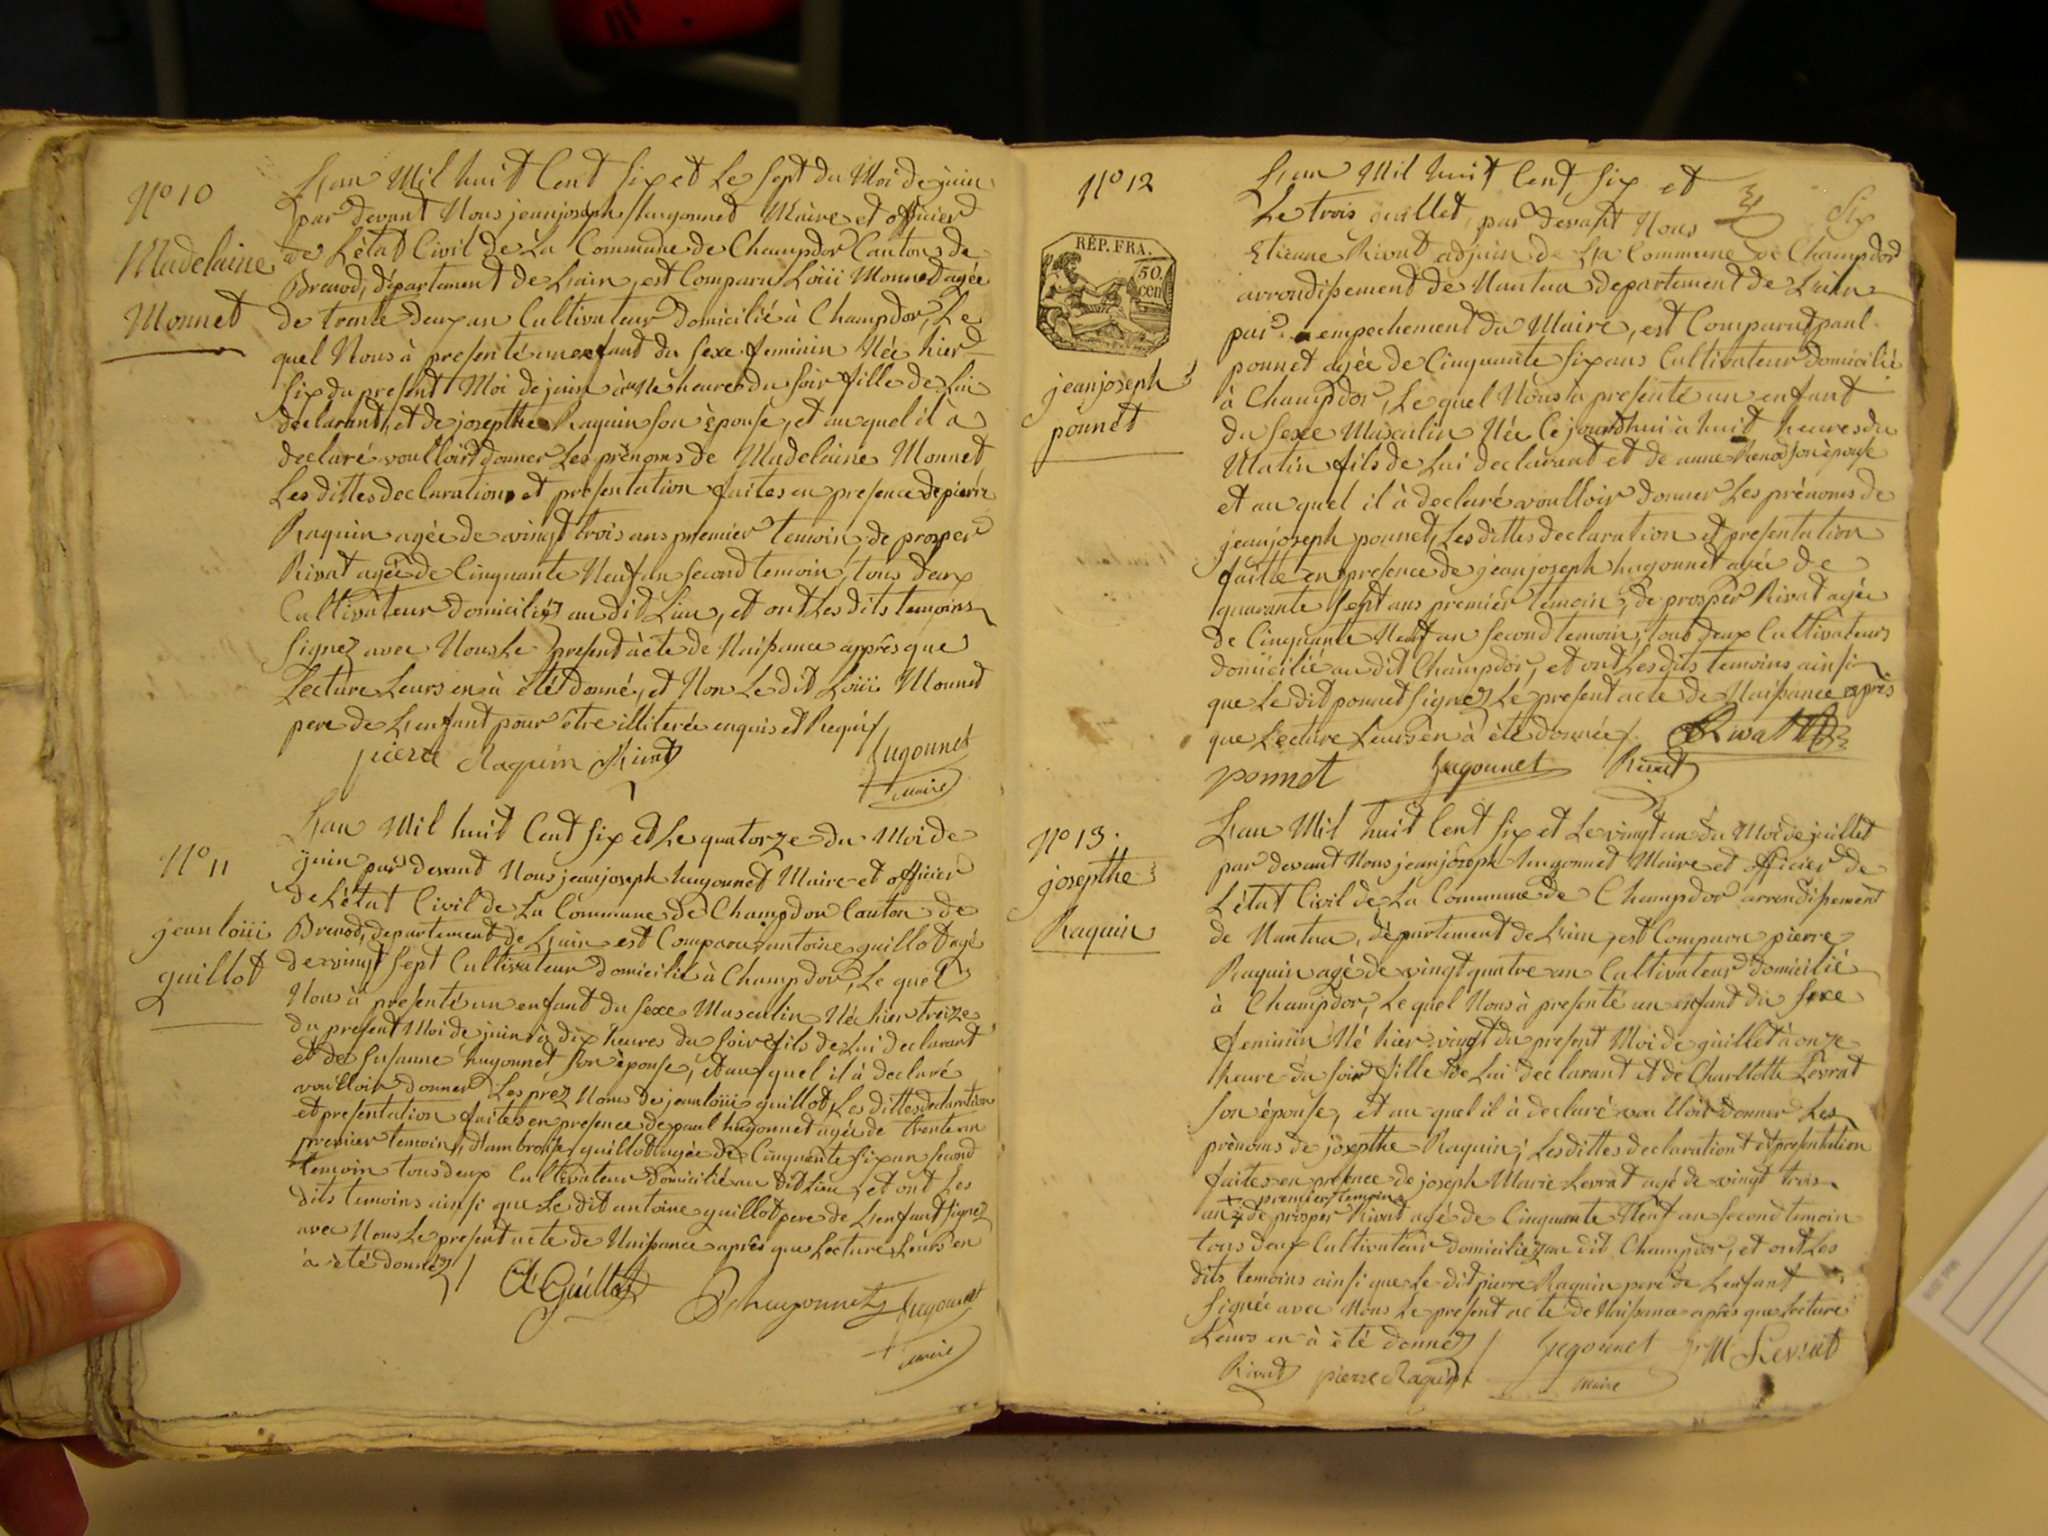 N° 10
Madelaine
Monnet
Lan Mil huit Cent six et Le sept du Moi de juin
par devant Nous jeanjoseph hugonnet Maire et officier
de L'état Civil de La Commune de Champdor Canton de
Brenod, département de Lain, est Comparu Loüii Monnet agée
de trente deux an Cultivateur Domicilié à Champdor, Le
quel Nous à presenté un enfant du sexe feminin Née hier
six du present Moi de juin à heures du soir fille de Lui
declarant, et de josepthe Raquin son épouse, et au quel il à
declaré voulloir donner Les prénoms de Madelaine Monnet
Les dittes declarations et presentation faites en presence de pierre
Raquin agée de vingt trois ans premier temoin, de prosper
Rivat agée de Cinquante Neuf an second temoin, tous deux
Cultivateur domiciliéz au dit Lieu, et ont Les dits temoins
signez avec Nous Le present acte de Naissance apprês que
Lecture Leurs en à été donné, et Non Le dit Loüii Monnet
pere de Lenfant pour être illiterée enquis et Requis /
pierre Raquin Rivat hugonnet
maire
N° 11
jean loüii
guillot
Lan Mil huit Cent six et Le quatorze du Moi de
juin par devant Nous jeanjoseph hugonnet Maire et officier
de L'état Civil de La Commune de Champdor Canton de
Brenod, departement de Lain est Comparu antoine guillot agé
de vingt sept Cultivateur domicilié à Champdor, Le quel
Nous à presenté un enfant du sexe Masculin Née hier treize
du present Moi de juin à dix heures du soir fils de Lui declarant
et de susanne hugonnet son épouse, et au quel il à declaré
voulloir donner Les préz Noms de jean loüii guillot, Les dittes declaration
et presentation faites en presence de paul hugonnet agée de trente an
premier temoin, d'ambroise guillot agée de Cinquante six an second
temoin tous deux Cultivateur Domicilié au dit Lieu, et ont Les
dits temoins ainsi que Le dit antoine guillot pere de Lenfant signez
avec Nous Le present acte de Naissance après que Lecture Leurs en
à été donnéz /
Guillot hugonnet hugonnet
maire
N° 12
RÉP. FRA.
50.
cen
jeanjoseph
ponnet
Six
Lan Mil huit Cent six et
Le trois juillet, par devant Nous
Etienne Rivat adjoin de La Commune de Champdor
arrondissement de Nantua departement de Lain
par empechement du Maire, est Comparut paul
ponnet agée de Cinquante six ans Cultivateur domicilié
à Champdor, Le quel Nous à presenté un enfant
du sexe Masculin Née Ce jourdhui à huit heures du
Matin fils de Lui declarant et de anne Renod son épouse
et au quel il à declaré voulloir donner Les prénoms de
jeanjoseph ponnet, Les dittes declaration et presentation
faitte en presence de jeanjoseph hugonnet agée de
quarante sept ans premier temoin, de prosper Rivat agée
de Cinquante Neuf an second temoin, tous deux Cultivateurs
domicilié au dit Champdor, et ont Les dits temoins ainsi
que Le dit ponnet signez Le present acte de Naissance après
que Lecture Leurs en à été donnée /. Rivat
ponnet hugonnet Rivat
N° 13.
josepthe
Raquin
Lan Mil huit Cent six et Le vingt un du Moi de juillet
par devant Nous jeanjoseph hugonnet Maire et officier de
L'état Civil de La Commune de Champdor arrondissement
de Nantua, département de Lain, est Comparu pierre
Raquin agé de vingt quatre an Cultivateur domicilié
à Champdor, Le quel Nous à presenté un enfant du sexe
feminin Né hier vingt du present Moi de juillet à onze
heure du soir fille de Lui declarant et de Charllotte Levrat
son épouse, et au quel il à declaré voulloir donner Les
prénoms de josepthe Raquin, Les dittes declaration et presentation
faites en presence de joseph Marie Levrat agé de vingt trois
premier temoin
an de prosper Rivat agé de Cinquante Neuf an second temoin
tous deux Cultivateur domiciliéz au dit Champdor, et ont Les
dits temoins ainsi que Le dit pierre Raquin pere de Lenfant
signée avec Nous Le present acte de Naissance après que Lecture
Leurs en à été donnéz / hugonnet M Levrat
Rivat pierre Raquin maire